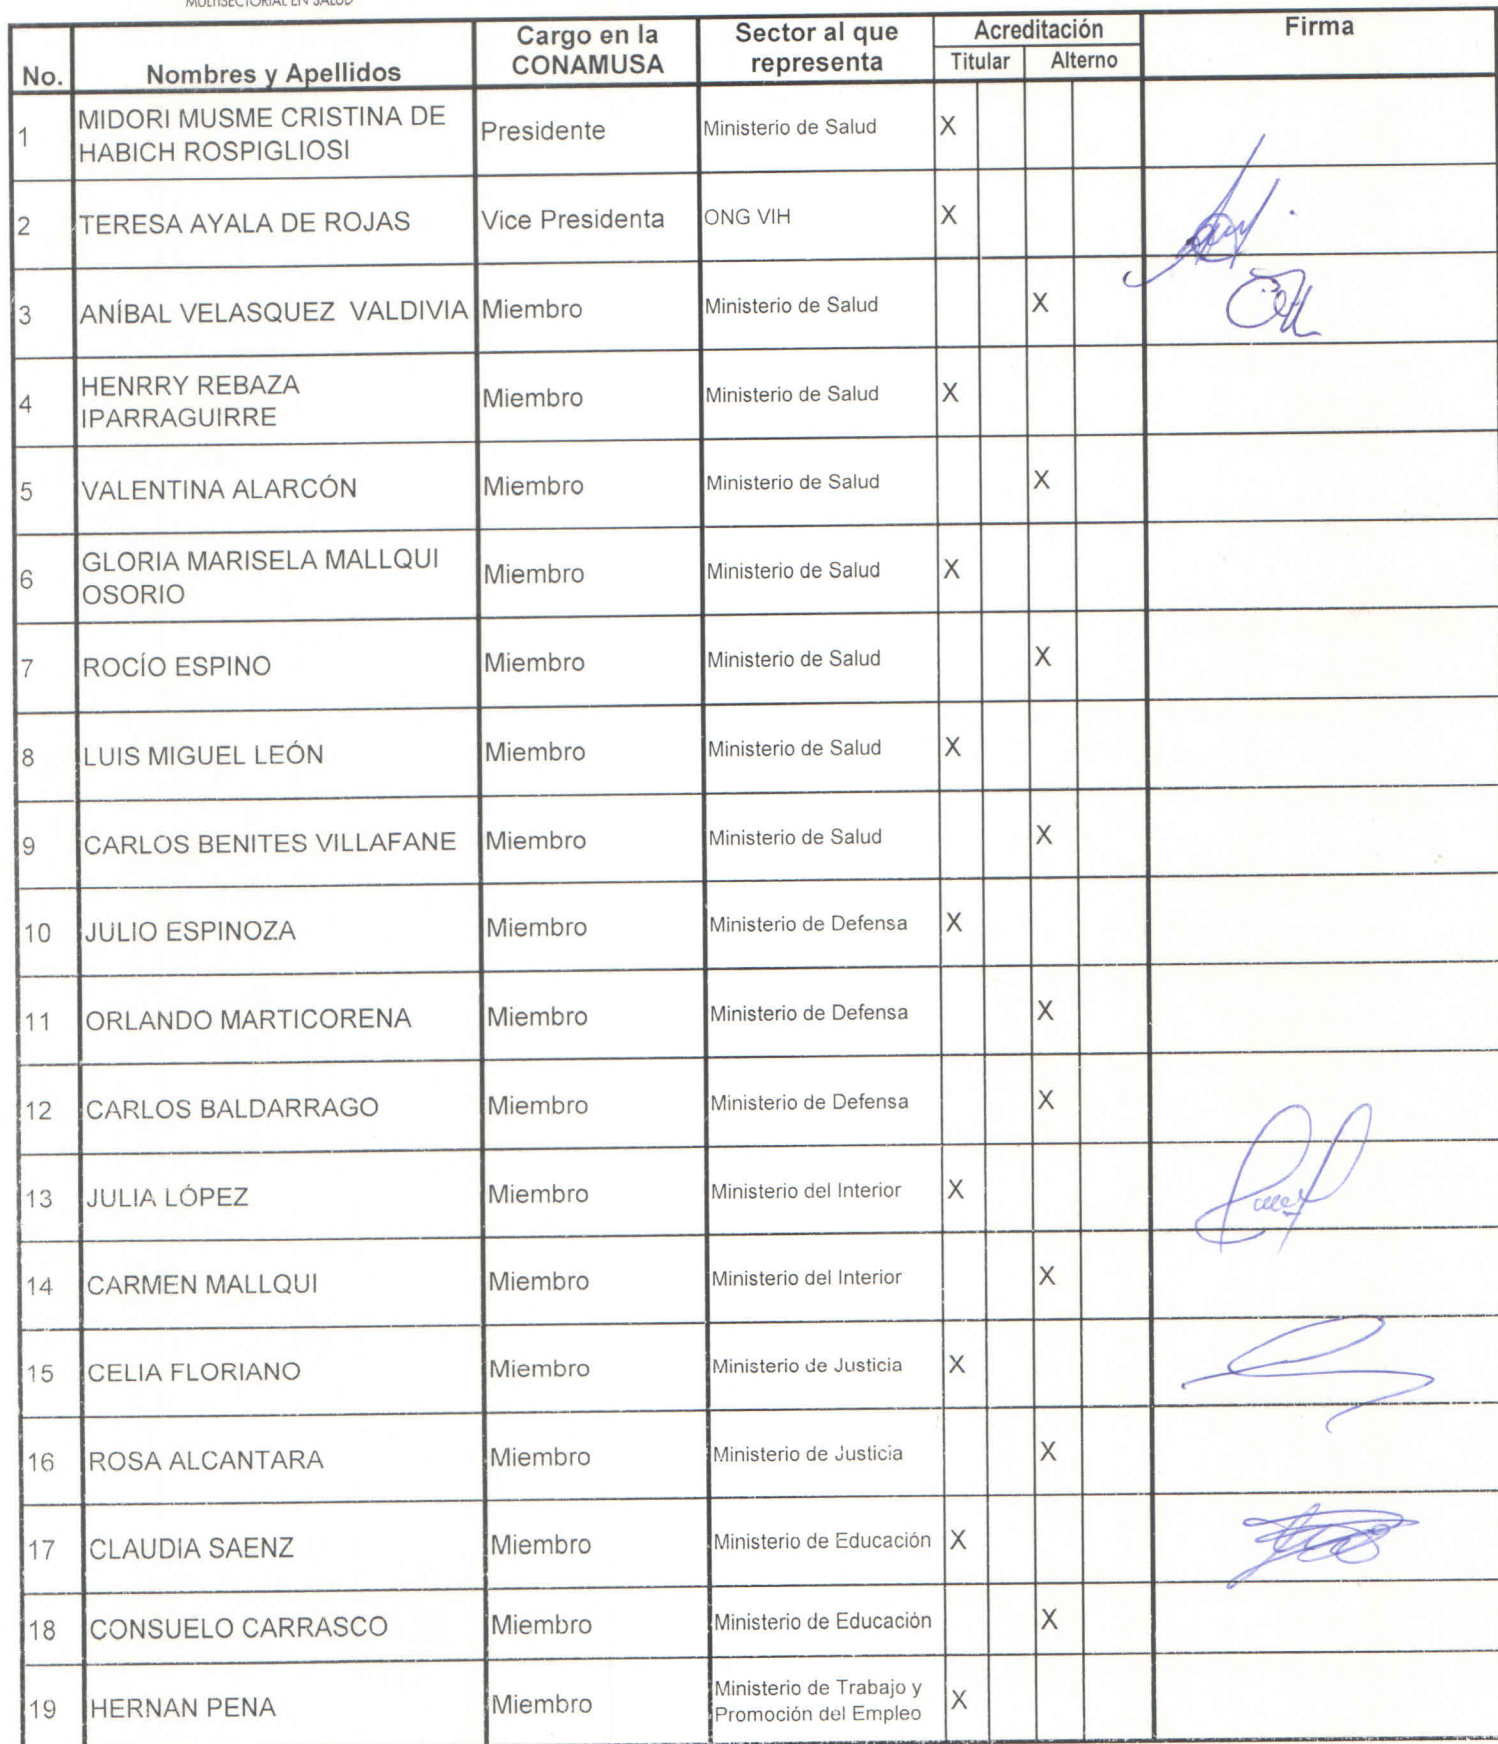 MULTISECTORIAL EN SALUD
No. Nombres y Apellidos Cargo en la CONAMUSA Sector al que representa Acreditación Titular Alterno Firma
1 MIDORI MUSME CRISTINA DE HABICH ROSPIGLIOSI Presidente Ministerio de Salud X
2 TERESA AYALA DE ROJAS Vice Presidenta ONG VIH X
3 ANÍBAL VELASQUEZ VALDIVIA Miembro Ministerio de Salud X
4 HENRRY REBAZA IPARRAGUIRRE Miembro Ministerio de Salud X
5 VALENTINA ALARCÓN Miembro Ministerio de Salud X
6 GLORIA MARISELA MALLQUI OSORIO Miembro Ministerio de Salud X
7 ROCÍO ESPINO Miembro Ministerio de Salud X
8 LUIS MIGUEL LEÓN Miembro Ministerio de Salud X
9 CARLOS BENITES VILLAFANE Miembro Ministerio de Salud X
10 JULIO ESPINOZA Miembro Ministerio de Defensa X
11 ORLANDO MARTICORENA Miembro Ministerio de Defensa X
12 CARLOS BALDARRAGO Miembro Ministerio de Defensa X
13 JULIA LÓPEZ Miembro Ministerio del Interior X
14 CARMEN MALLQUI Miembro Ministerio del Interior X
15 CELIA FLORIANO Miembro Ministerio de Justicia X
16 ROSA ALCANTARA Miembro Ministerio de Justicia X
17 CLAUDIA SAENZ Miembro Ministerio de Educación X
18 CONSUELO CARRASCO Miembro Ministerio de Educación X
19 HERNAN PENA Miembro Ministerio de Trabajo y Promoción del Empleo X